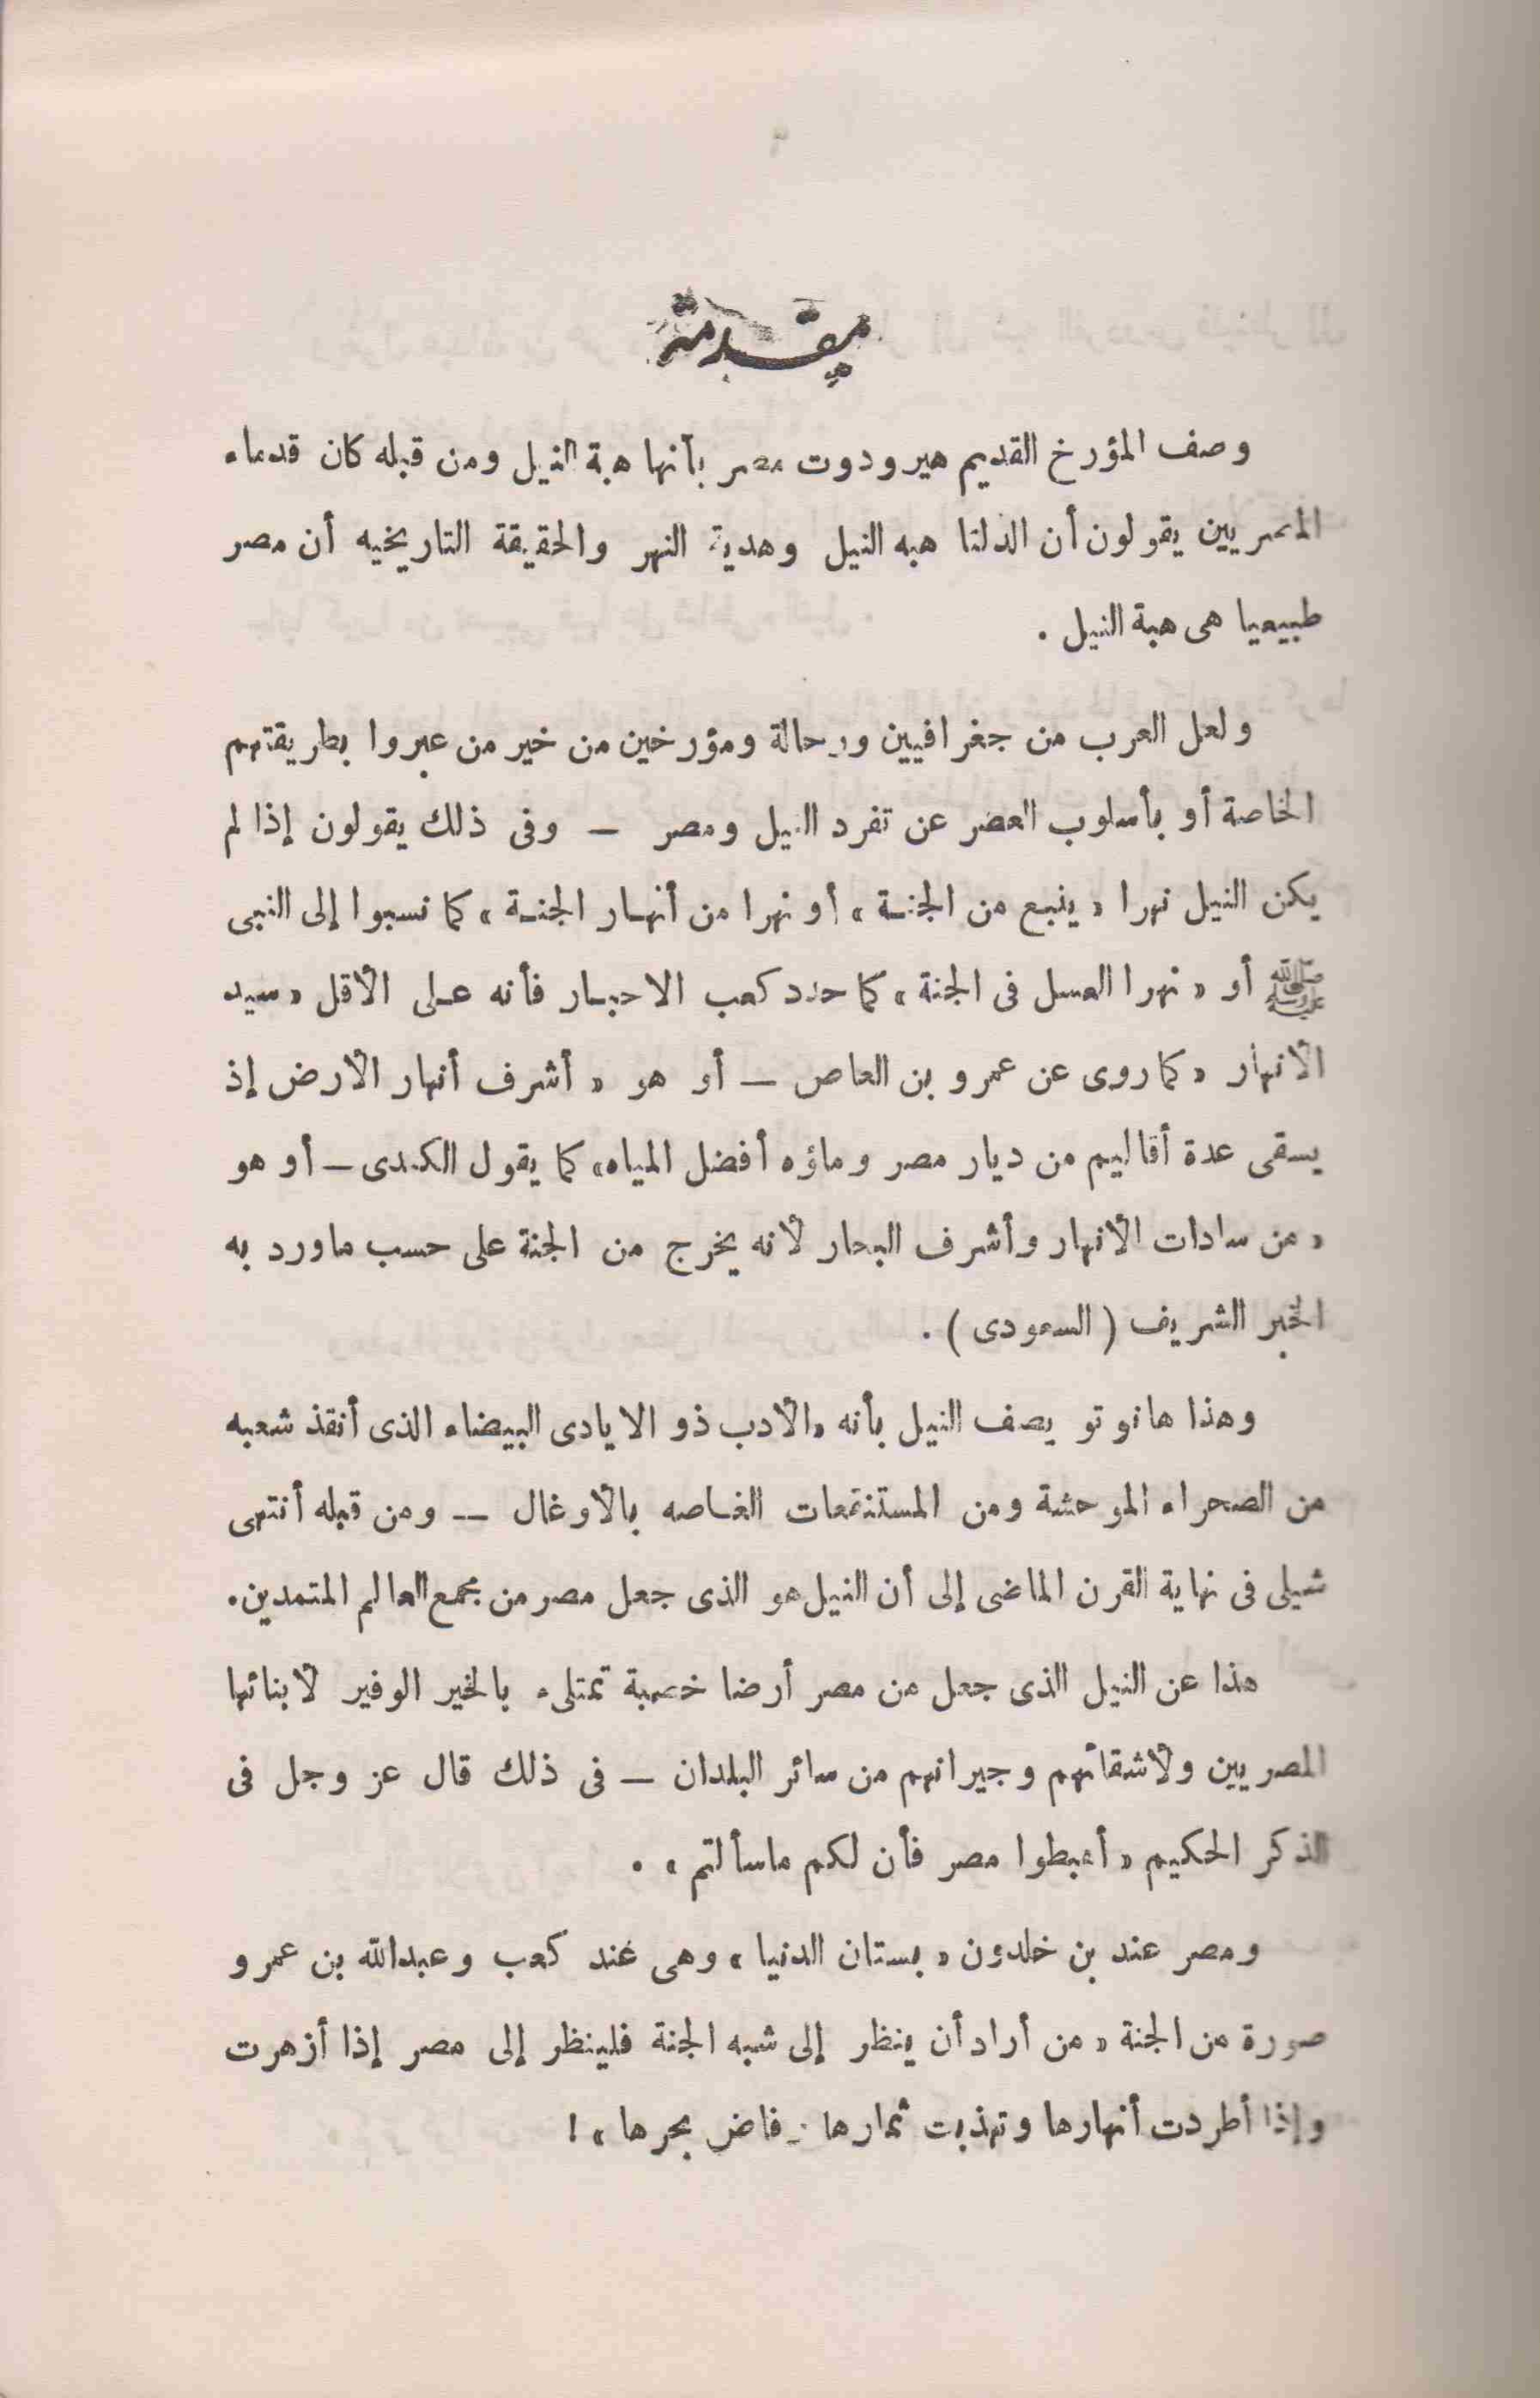 مقدمة
وصف المؤرخ القديم هيرودوت مصر بأنها هبة النيل ومن قبله كان قدماء
المصريين يقولون أن الدلتا هبه النيل وهدية النهر والحقيقة التاريخيه أن مصر
طبيعيا هى هبة النيل .
ولعل العرب من جغرافيين ورحالة ومؤرخين من خير من عبروا بطريقتهم
الخاصة أو بأسلوب العصر عن تفرد النيل ومصر – وفى ذلك يقولون إذا لم
يكن النيل نهرا « ينبع من الجنـة » أو نهرا من أنهـار الجنـة » كما نسبوا إلى النبى
ﷺ أو « نهرا العسل فى الجنة » كما حدد كعب الاحبـار فأنه عـلى الأقل « سيد
الأنهار « كما روى عن عمرو بن العاص – أو هو « أشرف أنهار الأرض إذ
يسقى عدة أقاليم من ديار مصر وماؤه أفضل المياه» كما يقول الكندى – أو هو
« من سادات الأنهار وأشرف البحار لأنه يخرج من الجنة على حسب ماورد به
الخبر الشريف ( السعودى ) .
وهذا هانوتو يصف النيل بأنه «الأدب ذو الايادى البيضاء الذى أنقذ شعبه
من الصحراء الموحشة ومن المستنقعات الغـاصه بالأوغال –– ومن قبله أنتهى
شيلى فى نهاية القرن الماضى إلى أن النيل هو الذى جعل مصر من مجمع العالم المتمدين.
هذا عن النيل الذى جعل من مصر أرضا خصبة تمتلىء بالخير الوفير لأبنائها
المصريين ولأشقائهم وجيرانهم من سائر البلدان – فى ذلك قال عز وجل فى
الذكر الحكيم « أهبطوا مصر فأن لكم ماسألتم » .
ومصر عند بن خلدون « بستان الدنيا » وهى عند كعب وعبدالله بن عمرو
صورة من الجنة « من أراد أن ينظر إلى شبه الجنة فلينظر إلى مصر إذا أزهرت
وإذا أطردت أنهارها وتهذبت ثمارها وفاض بحرها » !